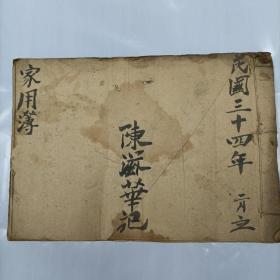 民國三十四年 二月立
陳淑華記
家用簿